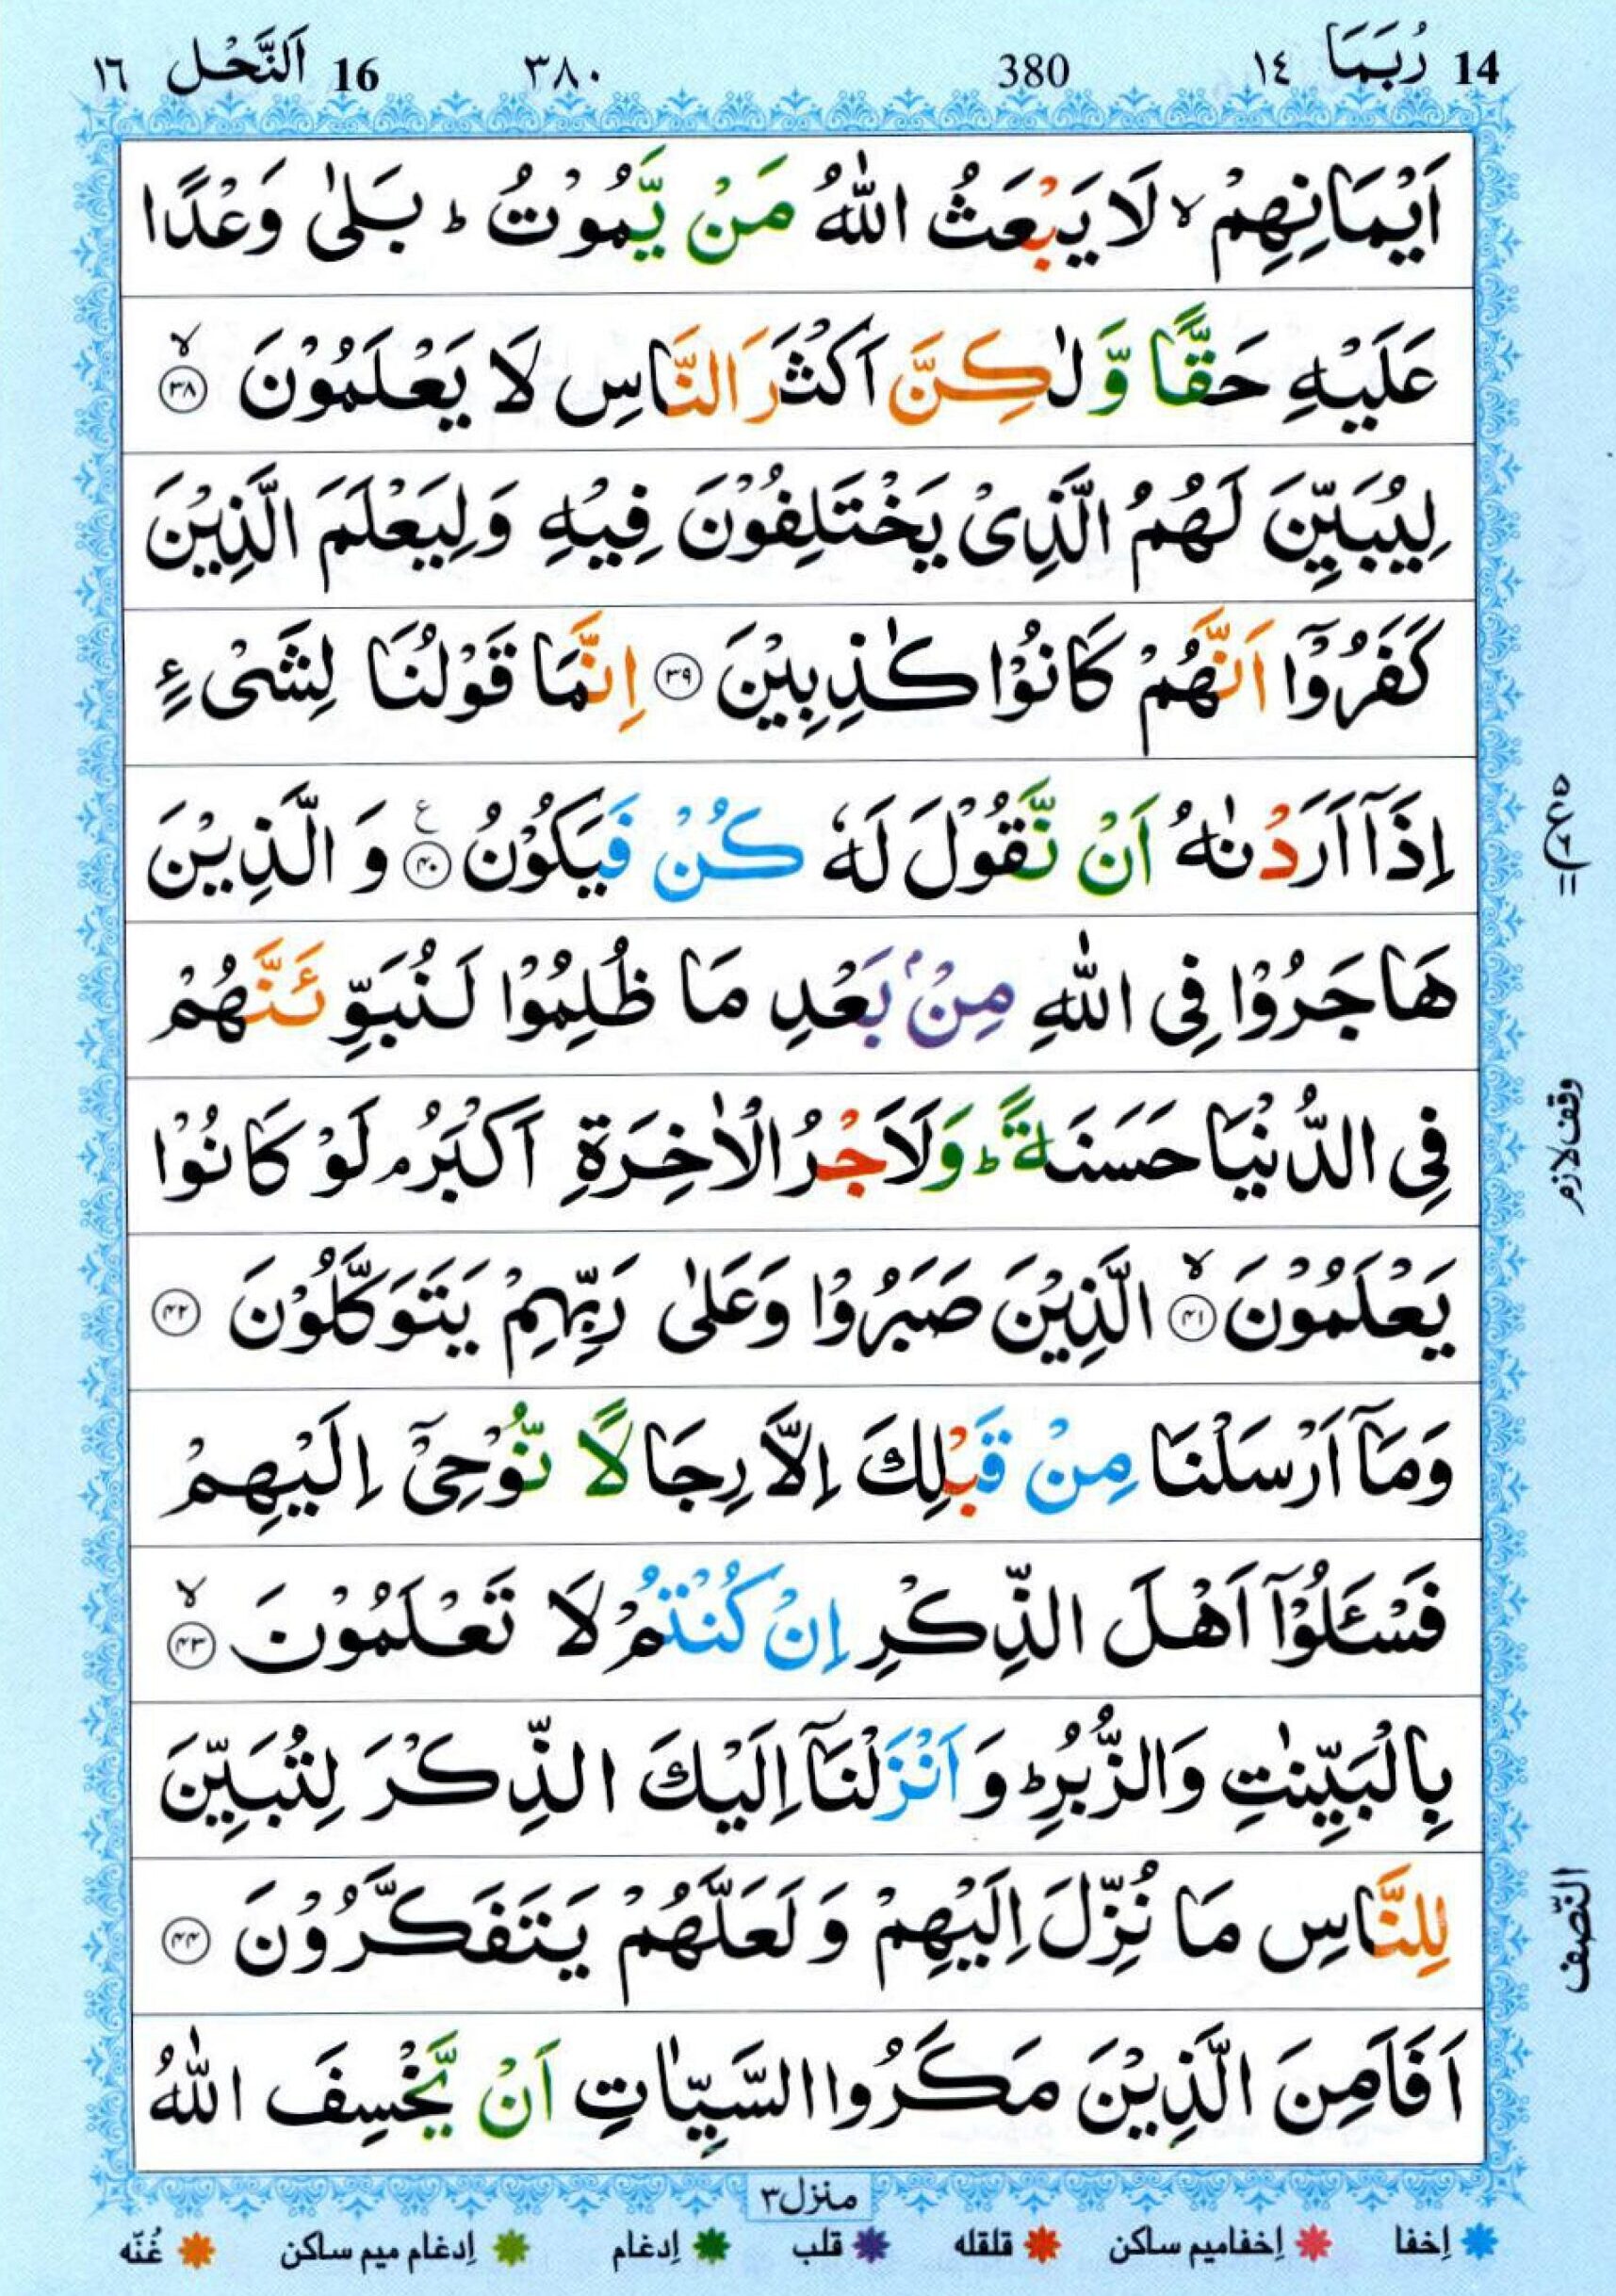 14 رُبَمَا ١٤ 380 ٣٨٠ 16 اَلنَّحْل ١٦
اَيْمَانِهِمْ ۙ لَا يَبْعَثُ اللّٰهُ مَنْ يَّمُوْتُ ؕ بَلٰى وَعْدًا
عَلَيْهِ حَقًّا وَّ لٰكِنَّ اَكْثَرَ النَّاسِ لَا يَعْلَمُوْنَ ۙ ﴿۳۸﴾
لِيُبَيِّنَ لَهُمُ الَّذِىْ يَخْتَلِفُوْنَ فِيْهِ وَلِيَعْلَمَ الَّذِيْنَ
كَفَرُوْۤا اَنَّهُمْ كَانُوْا كٰذِبِيْنَ ﴿۳۹﴾ اِنَّمَا قَوْلُنَا لِشَىْءٍ
اِذَاۤ اَرَدْنٰهُ اَنْ نَّقُوْلَ لَهٗ كُنْ فَيَكُوْنُ ﴿۴۰﴾ ع وَ الَّذِيْنَ
هَاجَرُوْا فِى اللّٰهِ مِنْۢ بَعْدِ مَا ظُلِمُوْا لَـنُبَوِّئَنَّهُمْ
فِى الدُّنْيَا حَسَنَةً ؕ وَلَاَجْرُ الْاٰخِرَةِ اَكْبَرُ ۘ لَوْ كَانُوْا
يَعْلَمُوْنَ ۙ ﴿۴۱﴾ الَّذِيْنَ صَبَرُوْا وَعَلٰى رَبِّهِمْ يَتَوَكَّلُوْنَ ﴿۴۲﴾
وَمَاۤ اَرْسَلْنَا مِنْ قَبْلِكَ اِلَّا رِجَالًا نُّوْحِىْۤ اِلَيْهِمْ
فَسْـَٔـلُوْۤا اَهْلَ الذِّكْرِ اِنْ كُنْتُمْ لَا تَعْلَمُوْنَ ۙ ﴿۴۳﴾
بِالْبَيِّنٰتِ وَالزُّبُرِ ؕ وَ اَنْزَلْنَاۤ اِلَيْكَ الذِّكْرَ لِتُبَيِّنَ
لِلنَّاسِ مَا نُزِّلَ اِلَيْهِمْ وَ لَعَلَّهُمْ يَتَفَكَّرُوْنَ ﴿۴۴﴾
اَفَاَمِنَ الَّذِيْنَ مَكَرُوا السَّيِّاٰتِ اَنْ يَّخْسِفَ اللّٰهُ
وقف لازم
النّصف
منزل ٣
إخفا إخفا ميم ساكن قلقله قلب إدغام إدغام ميم ساكن غُنّه